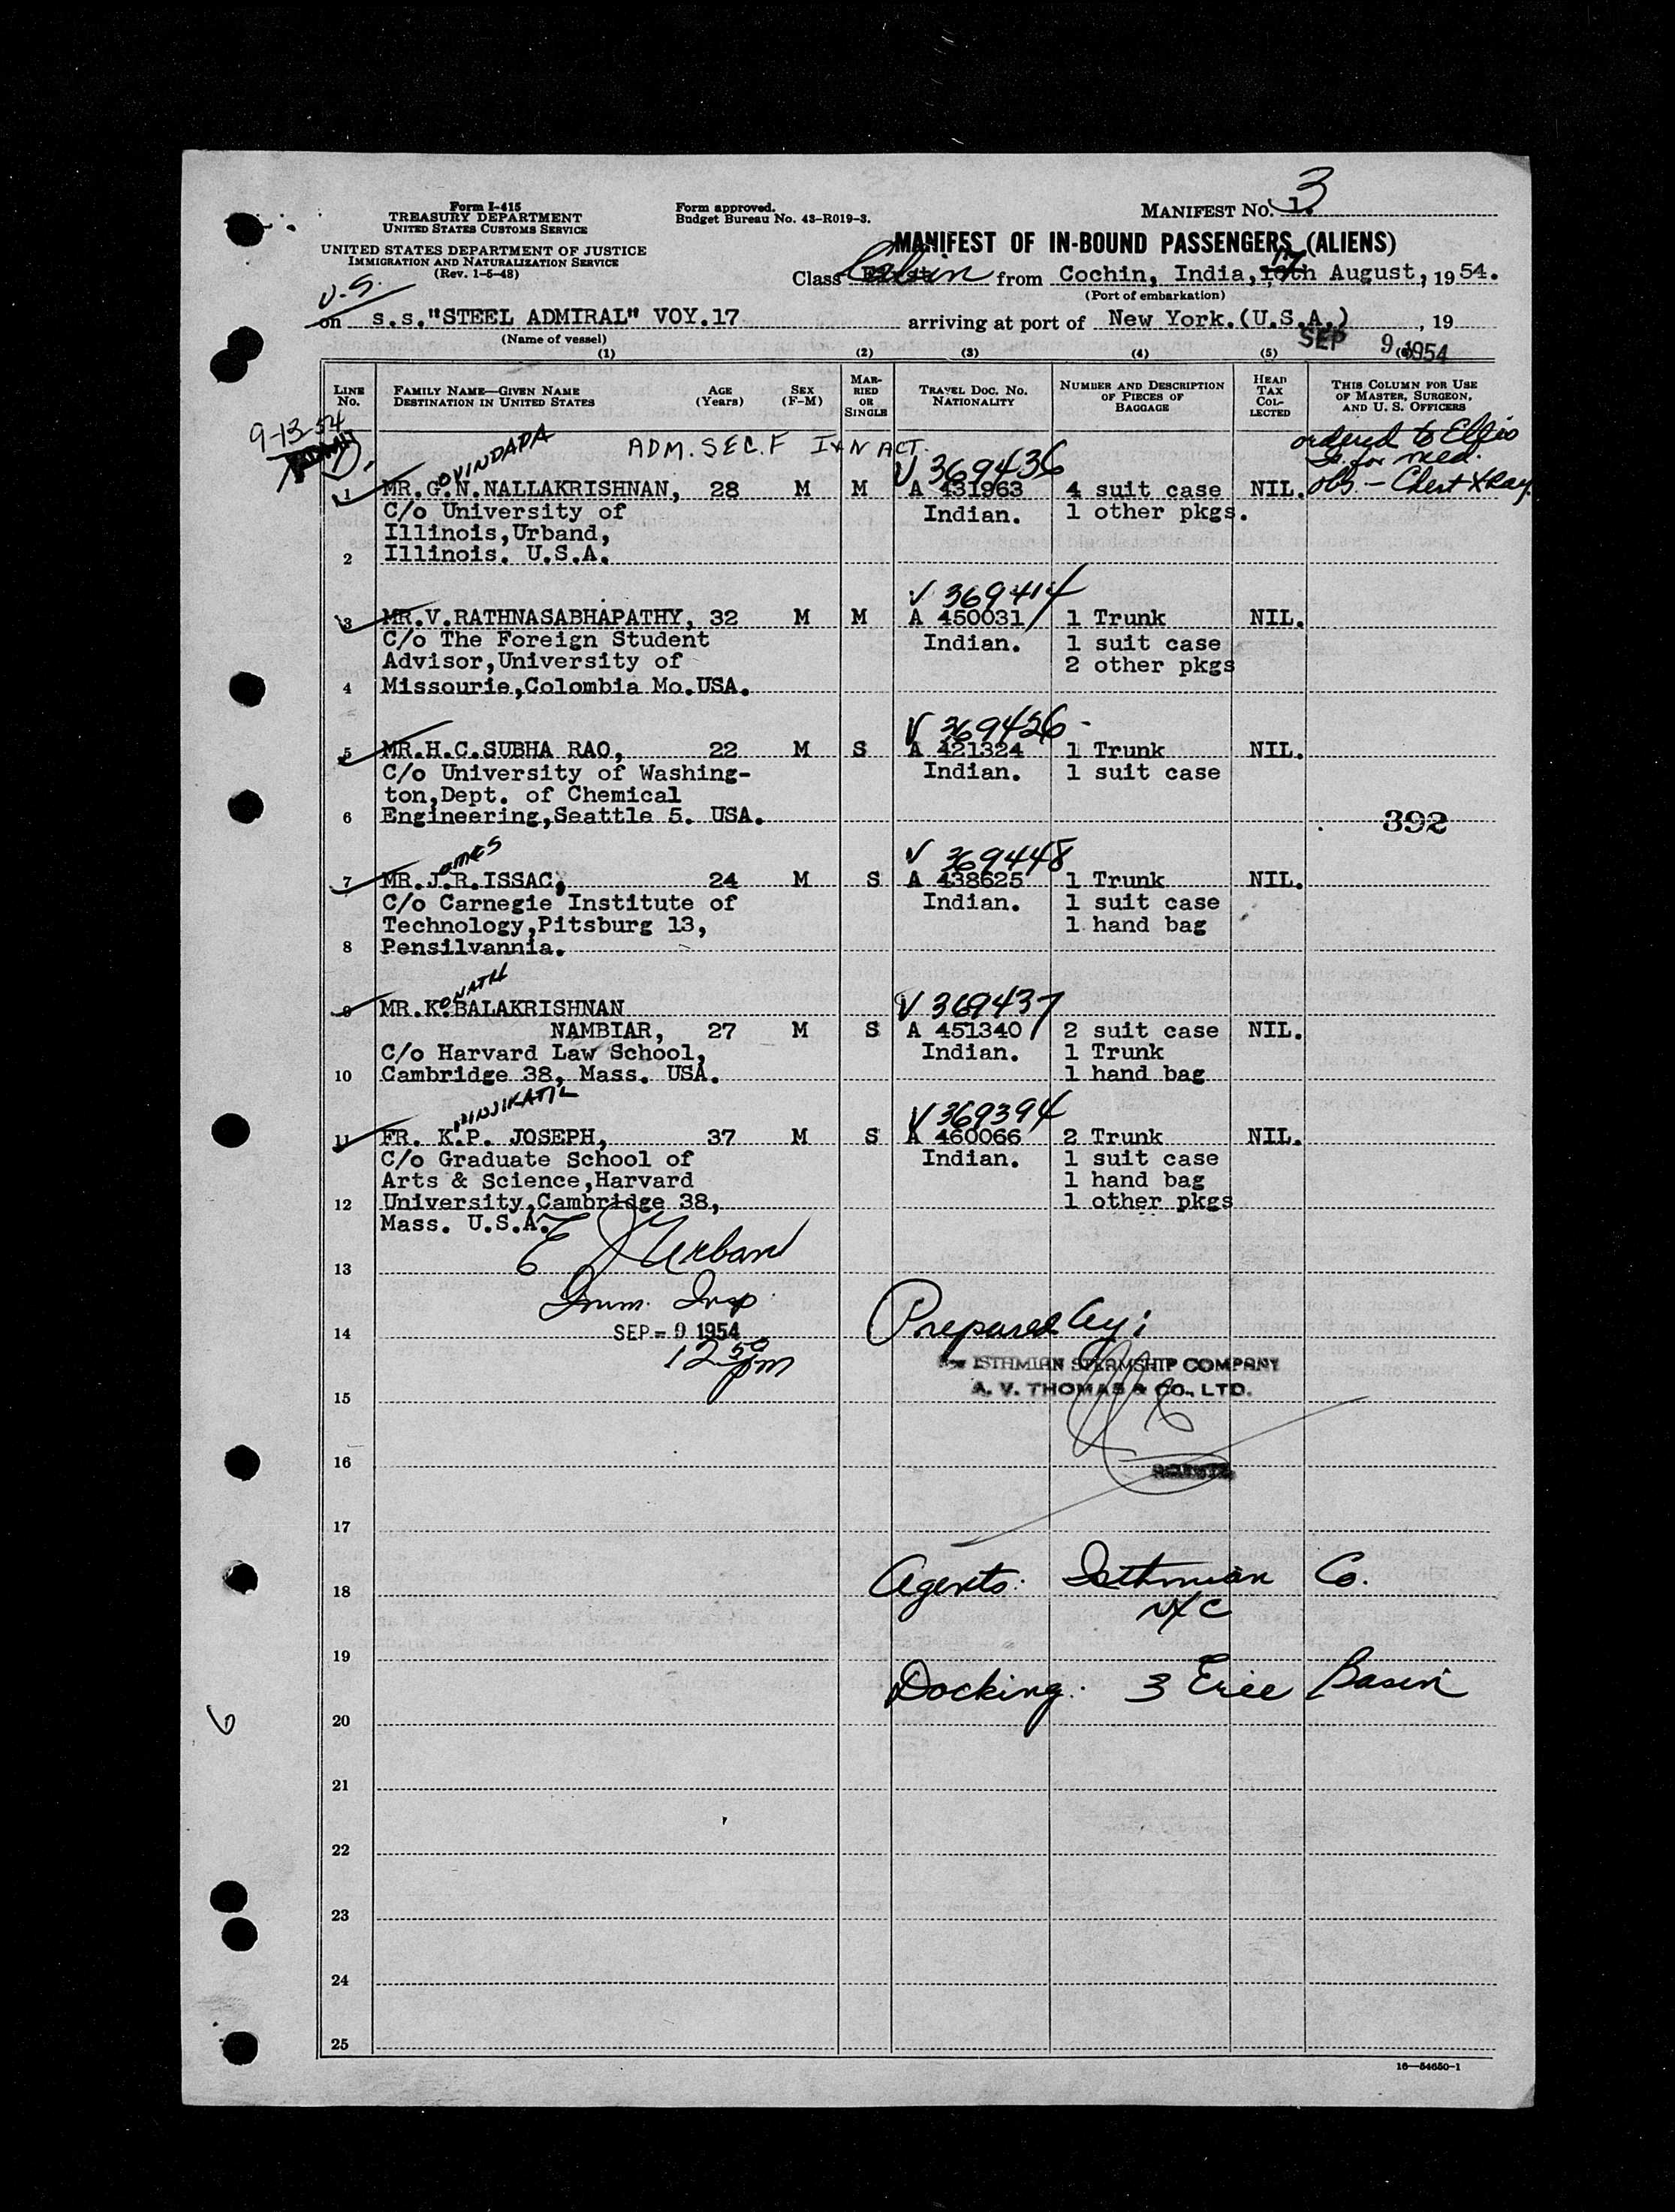 3
Form I-415
TREASURY DEPARTMENT
UNITED STATES CUSTOMS SERVICE
Form approved.
Budget Bureau No. 43-R019-3.
MANIFEST NO. 1.
UNITED STATES DEPARTMENT OF JUSTICE
IMMIGRATION AND NATURALIZATION SERVICE
(Rev. 1-5-48)
MANIFEST OF IN-BOUND PASSENGERS (ALIENS)
Class Cabin from Cochin, India, 17th August, 1954.
(Port of embarkation)
U.S.
on s.s."STEEL ADMIRAL" VOY.17 arriving at port of New York.(U.S.A.) , 19
(Name of vessel)
SEP 9 1954
(1) (2) (3) (4) (5) (6)
LINE No. FAMILY NAME—GIVEN NAME DESTINATION IN UNITED STATES AGE (Years) SEX (F-M) MARRIED OR SINGLE TRAVEL DOC. NO. NATIONALITY NUMBER AND DESCRIPTION OF PIECES OF BAGGAGE HEAD TAX COLLECTED THIS COLUMN FOR USE OF MASTER, SURGEON, AND U. S. OFFICERS
9-13-54
ADM. SEC. F I & N ACT.
ordered to Ellis
Is. for med.
obs - Chest X Ray
OVINDAPA V 369436
1 MR.G.N.NALLAKRISHNAN, 28 M M A 431963 4 suit case NIL.
C/o University of Indian. 1 other pkgs.
Illinois,Urband,
2 Illinois. U.S.A.
V 369414
3 MR.V.RATHNASABHAPATHY, 32 M M A 450031 1 Trunk NIL.
C/o The Foreign Student Indian. 1 suit case
Advisor,University of 2 other pkgs
4 Missourie,Colombia Mo.USA.
V 369426
5 MR.H.C.SUBHA RAO, 22 M S A 421324 1 Trunk NIL.
C/o University of Washing- Indian. 1 suit case
ton,Dept. of Chemical
6 Engineering,Seattle 5. USA.
392
AMES V 369448
7 MR.J.R.ISSAC, 24 M S A 438625 1 Trunk NIL.
C/o Carnegie Institute of Indian. 1 suit case
Technology,Pitsburg 13, 1 hand bag
8 Pensilvannia.
ONATH V 369437
9 MR.K.BALAKRISHNAN
NAMBIAR, 27 M S A 451340 2 suit case NIL.
C/o Harvard Law School, Indian. 1 Trunk
10 Cambridge 38, Mass. USA. 1 hand bag
V 369394
11 FR. K.P. JOSEPH, 37 M S A 460066 2 Trunk NIL.
C/o Graduate School of Indian. 1 suit case
Arts & Science,Harvard 1 hand bag
12 University,Cambridge 38, 1 other pkgs
Mass. U.S.A.
E J Urban
13
Imm. Insp.
14 SEP - 9 1954
12 50 pm
Prepared by:
ISTHMIAN STEAMSHIP COMPANY
A. V. THOMAS & CO., LTD.
15
16
17
18 Agents: Isthmian Co.
NYC
19
Docking: 3 Erie Basin
20
6
21
22
23
24
25
16—54650-1